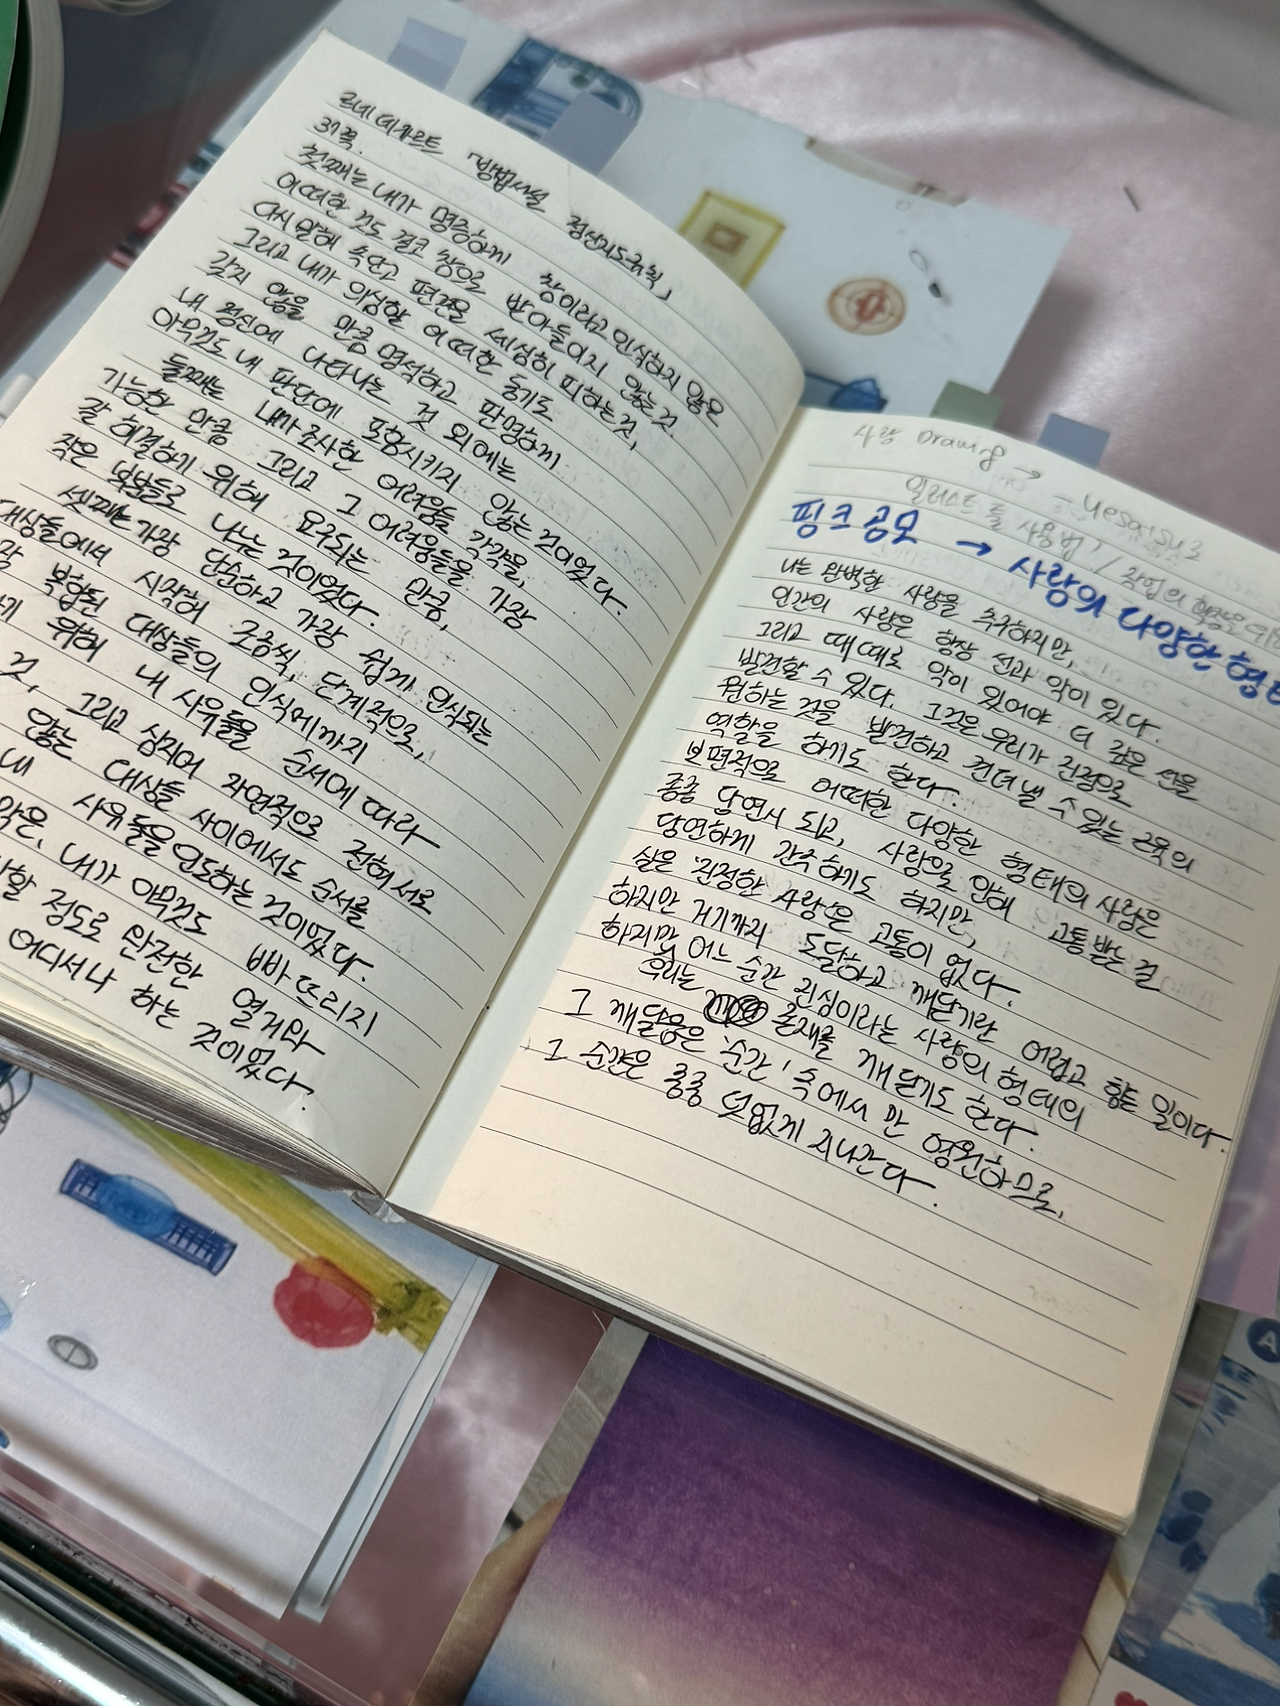 르네 데카르트 「방법서설 정신지도규칙」
37쪽.
첫째는 내가 명증하게 참이라고 인식하지 않은
어떠한 것도 결코 참으로 받아들이지 않는 것.
다시 말해 속단과 편견을 세심히 피하는 것,
그리고 내가 의심할 어떠한 동기도
갖지 않을 만큼 명석하고 판명하게
내 정신에 나타나는 것 외에는
아무것도 내 판단에 포함시키지 않는 것이었다.
둘째는 내가 조사한 어려움들 각각을,
가능한 만큼 그리고 그 어려움들을 가장
잘 해결하기 위해 요구되는 만큼,
작은 부분들로 나누는 것이었다.
셋째는 가장 단순하고 가장 쉽게 인식되는
대상들에서 시작해 조금씩, 단계적으로,
복합된 대상들의 인식에까지
위해 내 사유들을 순서에 따라
것, 그리고 심지어 자연적으로 전혀 서로
않는 대상들 사이에서도 순서를
내 사유들을 인도하는 것이었다.
내가 아무것도 빠뜨리지
할 정도로 완전한 열거와
어디서나 하는 것이었다.
사랑 Drawing → - yesgisu3
일러스트를 사용법! / 작업의 확장을
핑크공모 → 사랑의 다양한 형태
나는 완벽한 사랑을 추구하지만,
인간의 사랑은 항상 선과 악이 있다.
그리고 때때로 악이 있어야 더 깊은 선을
발견할 수 있다. 그것은 우리가 진정으로
원하는 것을 발견하고 견뎌낼 수 있는 근육의
역할을 하기도 한다.
보편적으로 어떠한 다양한 형태의 사랑은
종종 당연시 되고, 사랑으로 인해 고통받는 걸
당연하게 간주하기도 하지만,
실은 '진정한 사랑'은 고통이 없다.
하지만 거기까지 도달하고 깨닫기란 어렵고 힘든 일이다.
하지만 어느 순간 진심이라는 사랑의 형태의
우리는 존재를 깨닫기도 한다.
그 깨달음은 '순간' 속에서만 영원하므로,
그 순간은 종종 덧없게 지나간다.